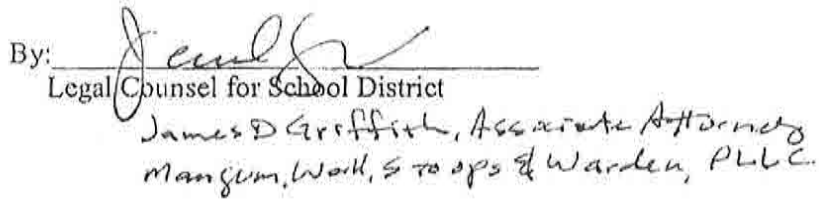 By:
Legal Counsel for School District
James D Griffith, Associate Attorney
Mangum, Wall, Stoops & Warden, PLLC.